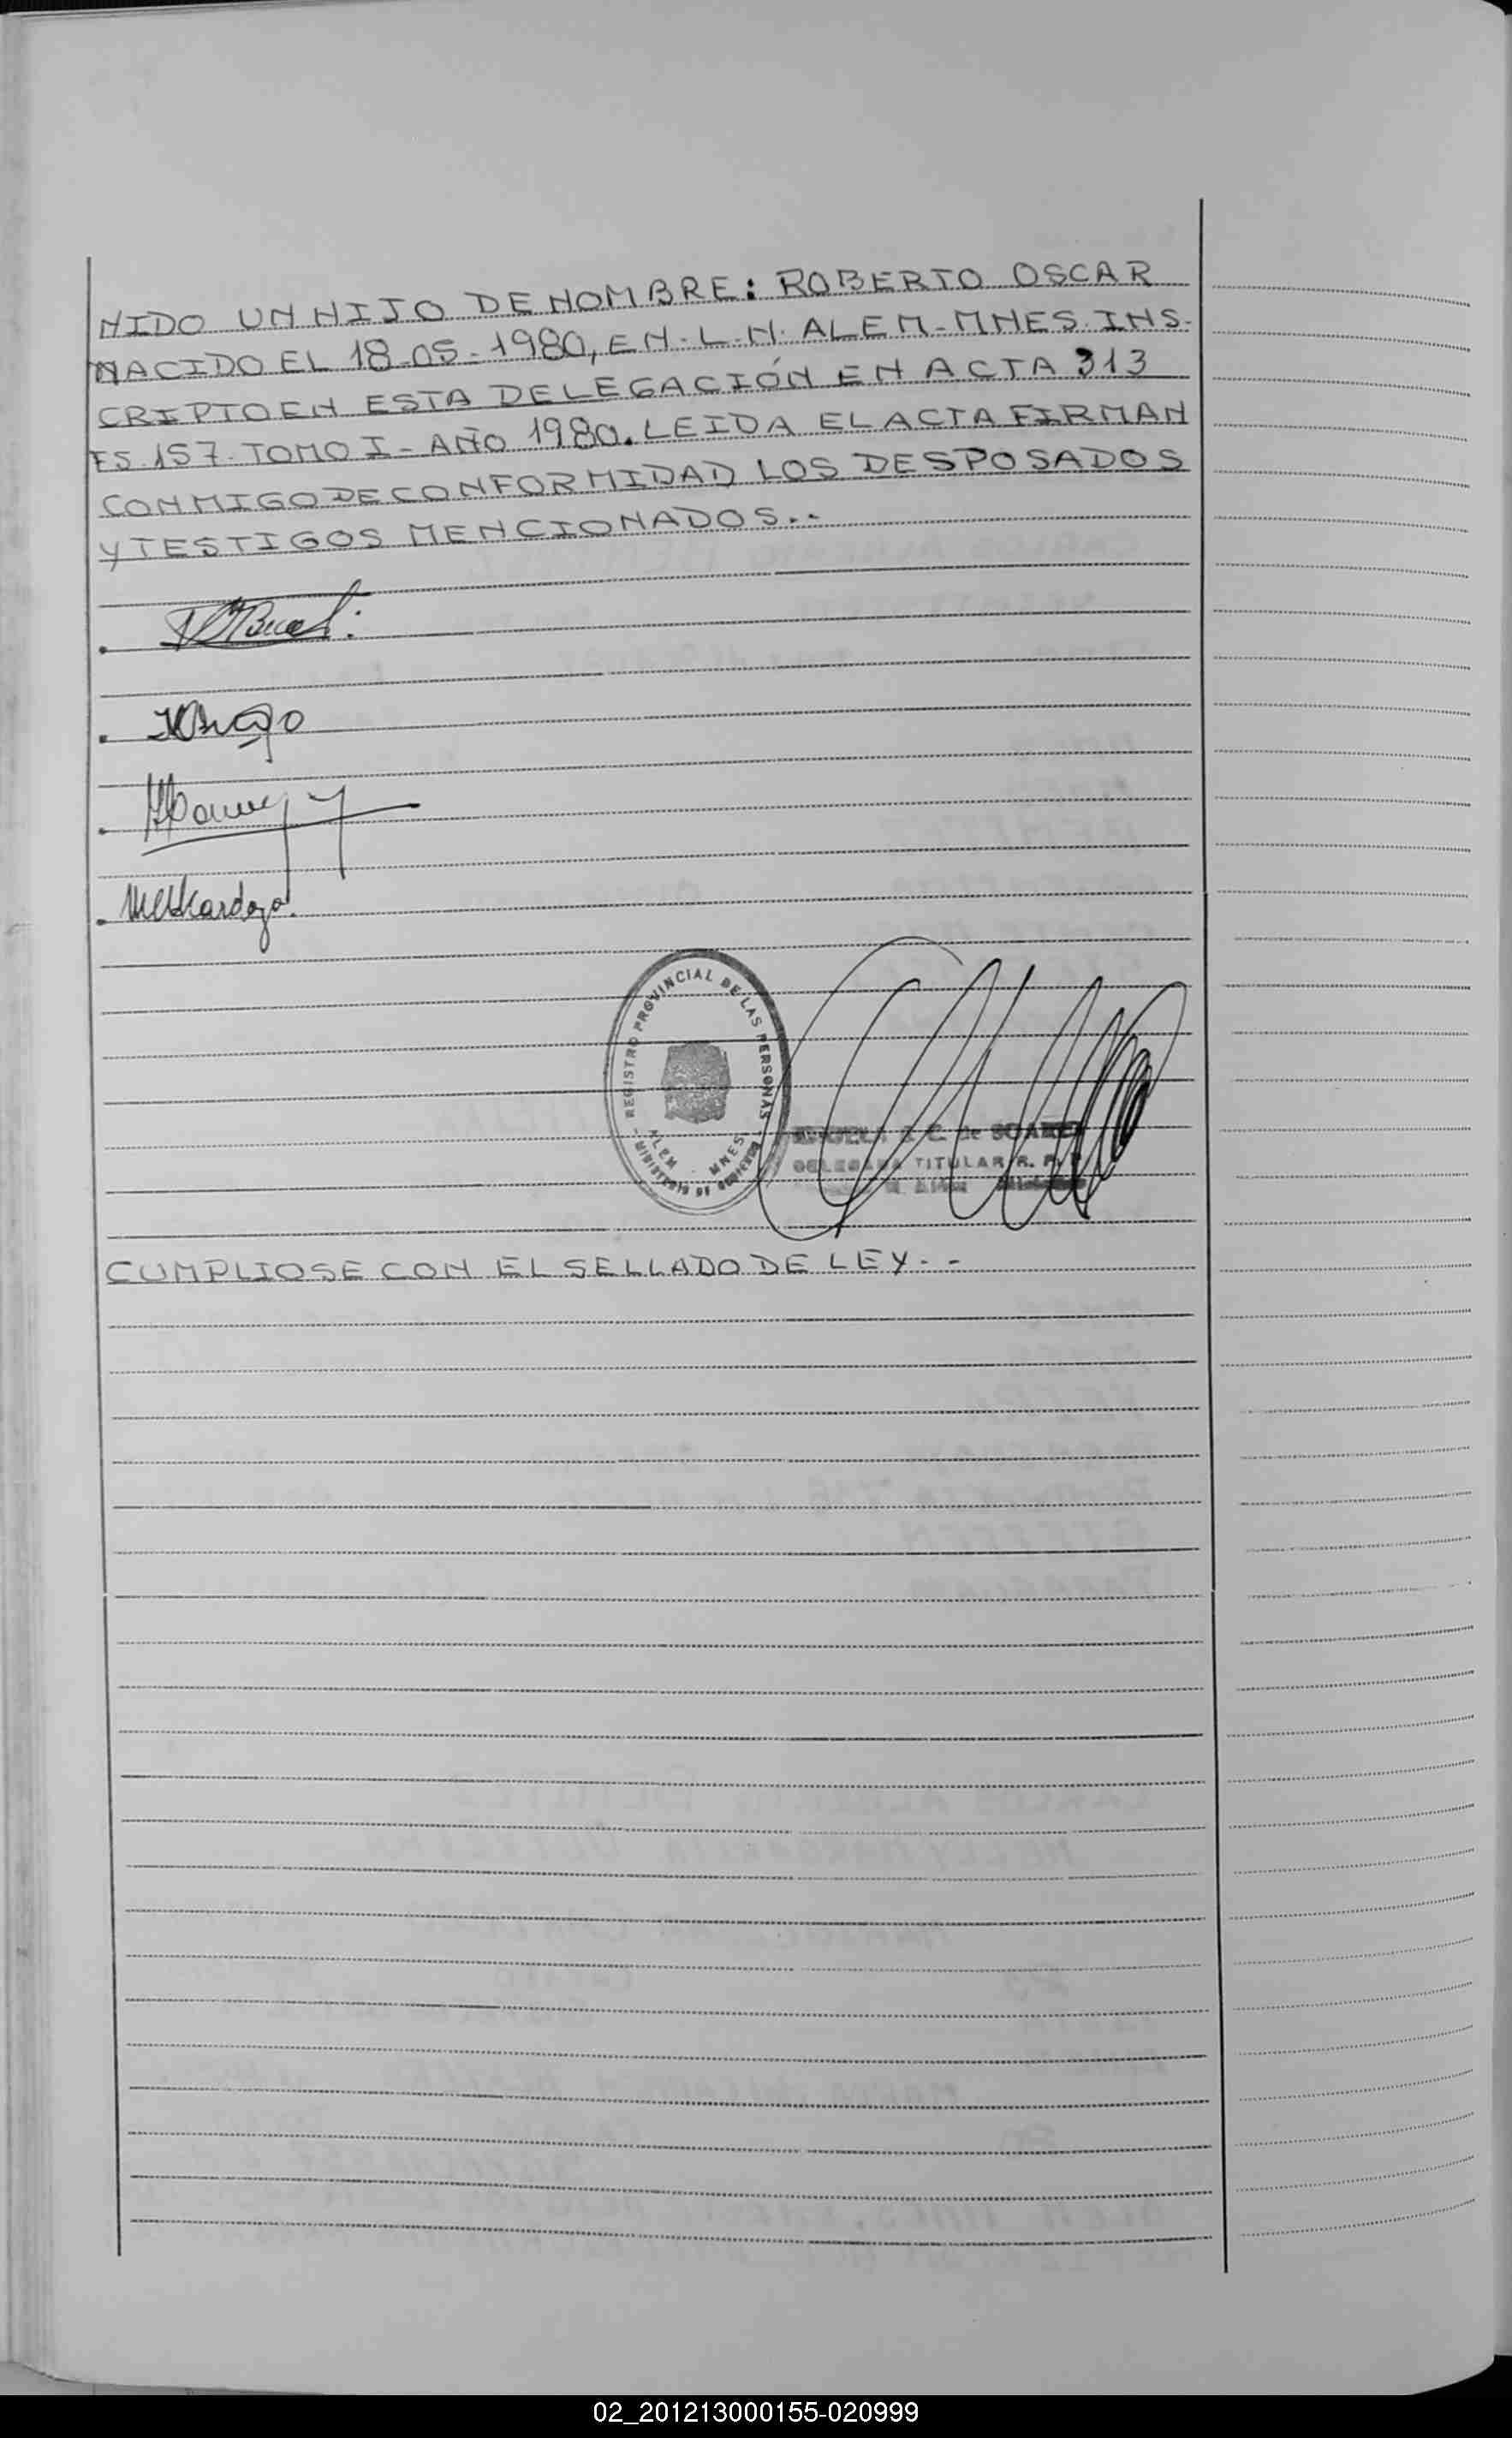 NIDO UN HIJO DE NOMBRE: ROBERTO OSCAR
NACIDO EL 18-05-1980, EN-L.N. ALEM-MNES. INS-
CRIPTO EN ESTA DELEGACIÓN EN ACTA 313
FS.157. TOMO I- AÑO 1980. LEIDA EL ACTA FIRMAN
CONMIGO DE CONFORMIDAD LOS DESPOSADOS
Y TESTIGOS MENCIONADOS.-
REGISTRO PROVINCIAL DE LAS PERSONAS
ALEM - MNES
MINISTERIO DE GOBIERNO
E. C. de SOAREZ
DELEGADA TITULAR R. P. P.
CUMPLIOSE CON EL SELLADO DE LEY.-
02_201213000155-020999